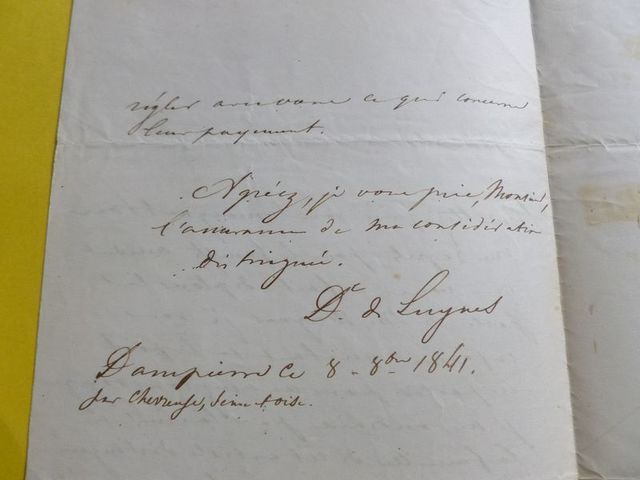 régler avec vous ce qui concerne
leur payement.
Agréez, je vous prie, Monsieur,
l'assurance de ma considération
distinguée.
Dc. de Luynes
Dampierre ce 8 - 8bre 1841.
par Chevreuse, Seine et oise.